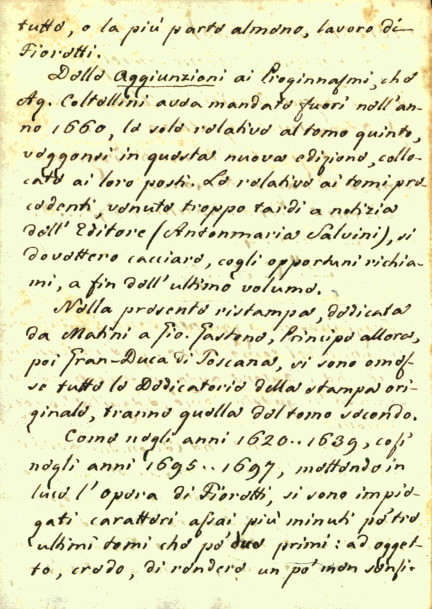 tutto, o la più parte almeno, lavoro di
Fioretti.
Delle Aggiunzioni ai Proginnasmi, che
Ag. Coltellini avea mandate fuori nell'an-
no 1660, le sole relative al tomo quinto,
veggonsi in questa nuova edizione, collo-
cate ai loro posti. Le relative ai tomi pre
cedenti, venute troppo tardi a notizia
dell'Editore (Antonmaria Salvini), si
dovettero cacciare, cogli opportuni richia-
mi, a fin dell'ultimo volume.
Nella presente ristampa, dedicata
da Matini a Gio. Gastone, Principe allora,
poi Gran-Duca di Toscana, si sono omes-
se tutte le Dedicatorie della stampa ori-
ginale, tranne quella del tomo secondo.
Come negli anni 1620..1639, così
negli anni 1695..1697, mettendo in
luce l'opera di Fioretti, si sono impie-
gati caratteri assai più minuti pe' tre
ultimi tomi che pe' due primi: adogget-
to, credo, di rendere un po' men sensi-